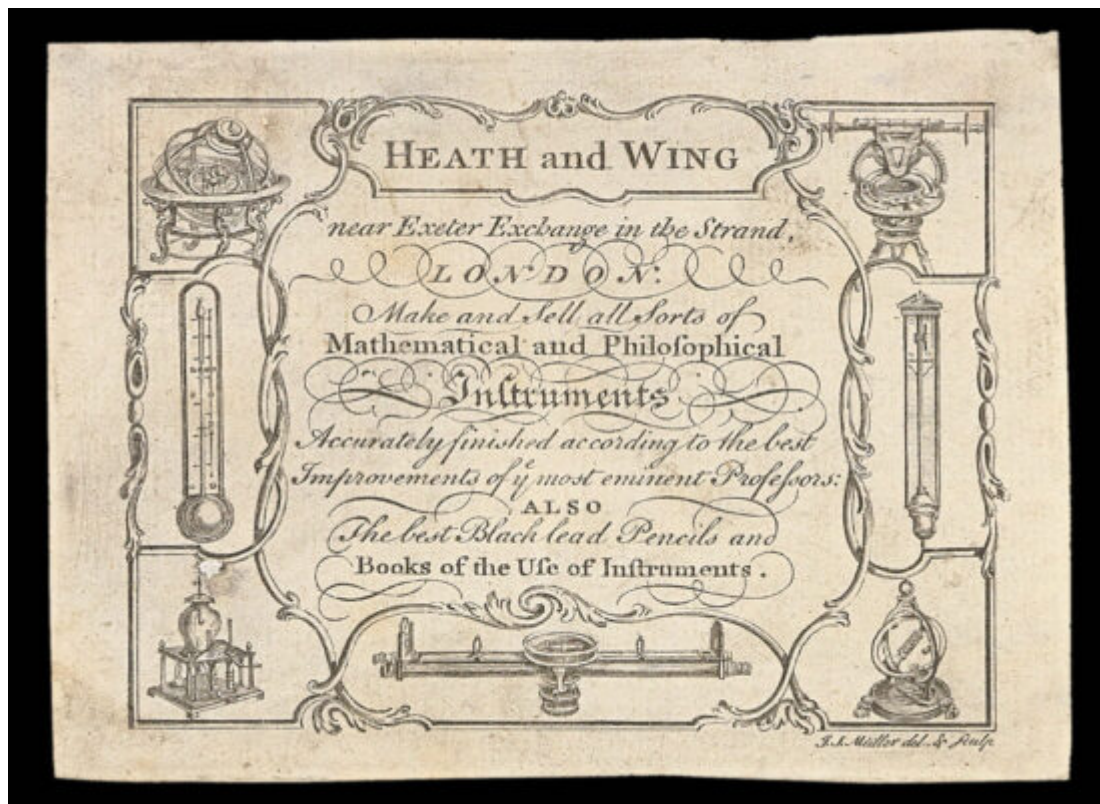 HEATH and WING
near Exeter Exchange in the Strand,
LONDON:
Make and Sell all Sorts of
Mathematical and Philoſophical
Inſtruments
Accurately finished according to the best
Improvements of yͤ most eminent Profeſsors:
ALSO
The best Black lead Pencils and
Books of the Uſe of Inſtruments.
J.S. Müller del. & Sculp